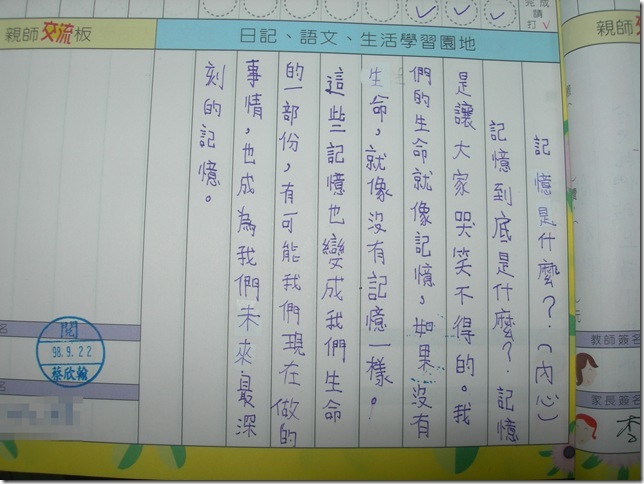 完成
請
打√
親師交流板
日記、語文、生活學習園地
親師
記憶是什麼？（內心）
記憶到底是什麼？記憶
是讓大家哭笑不得的。我
們的生命就像記憶，如果沒有
生命，就像沒有記憶一樣。
這些記憶也變成我們生命
的一部份，有可能我們現在做的
事情，也成為我們未來最深
刻的記憶。
名
閱
98.9.22
蔡欣翰
名
教師簽名
家長簽名
李